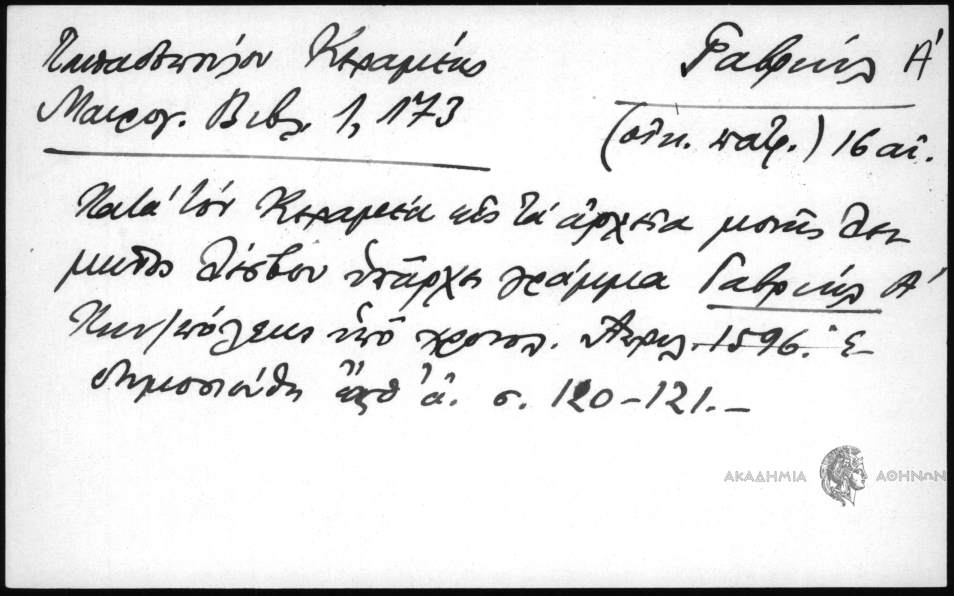 Παπαδοπούλου Κεραμέως
Μαυρογ. Βιβλ. 1, 173
Γαβριήλ Α΄
(οἰκ. πατρ.) 16 αἰ.
Κατά τόν Κεραμέα εἰς τά ἀρχεῖα μονῆς Λει-
μῶνος Λέσβου ὑπάρχει γράμμα Γαβριήλ Α΄
Κων/πόλεως ὑπό χρονολ. Ἀπριλ. 1596. Ἐ-
δημοσιεύθη ἔνθ᾽ ἀ. σ. 120-121.-
ΑΚΑΔΗΜΙΑ ΑΘΗΝΩΝ